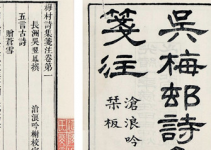 吳梅邨詩
箋注
滄浪吟
栞板
梅村詩集箋注卷第一
長洲吳翌鳳撰
滄浪吟榭校
五言古詩
贈蒼雪